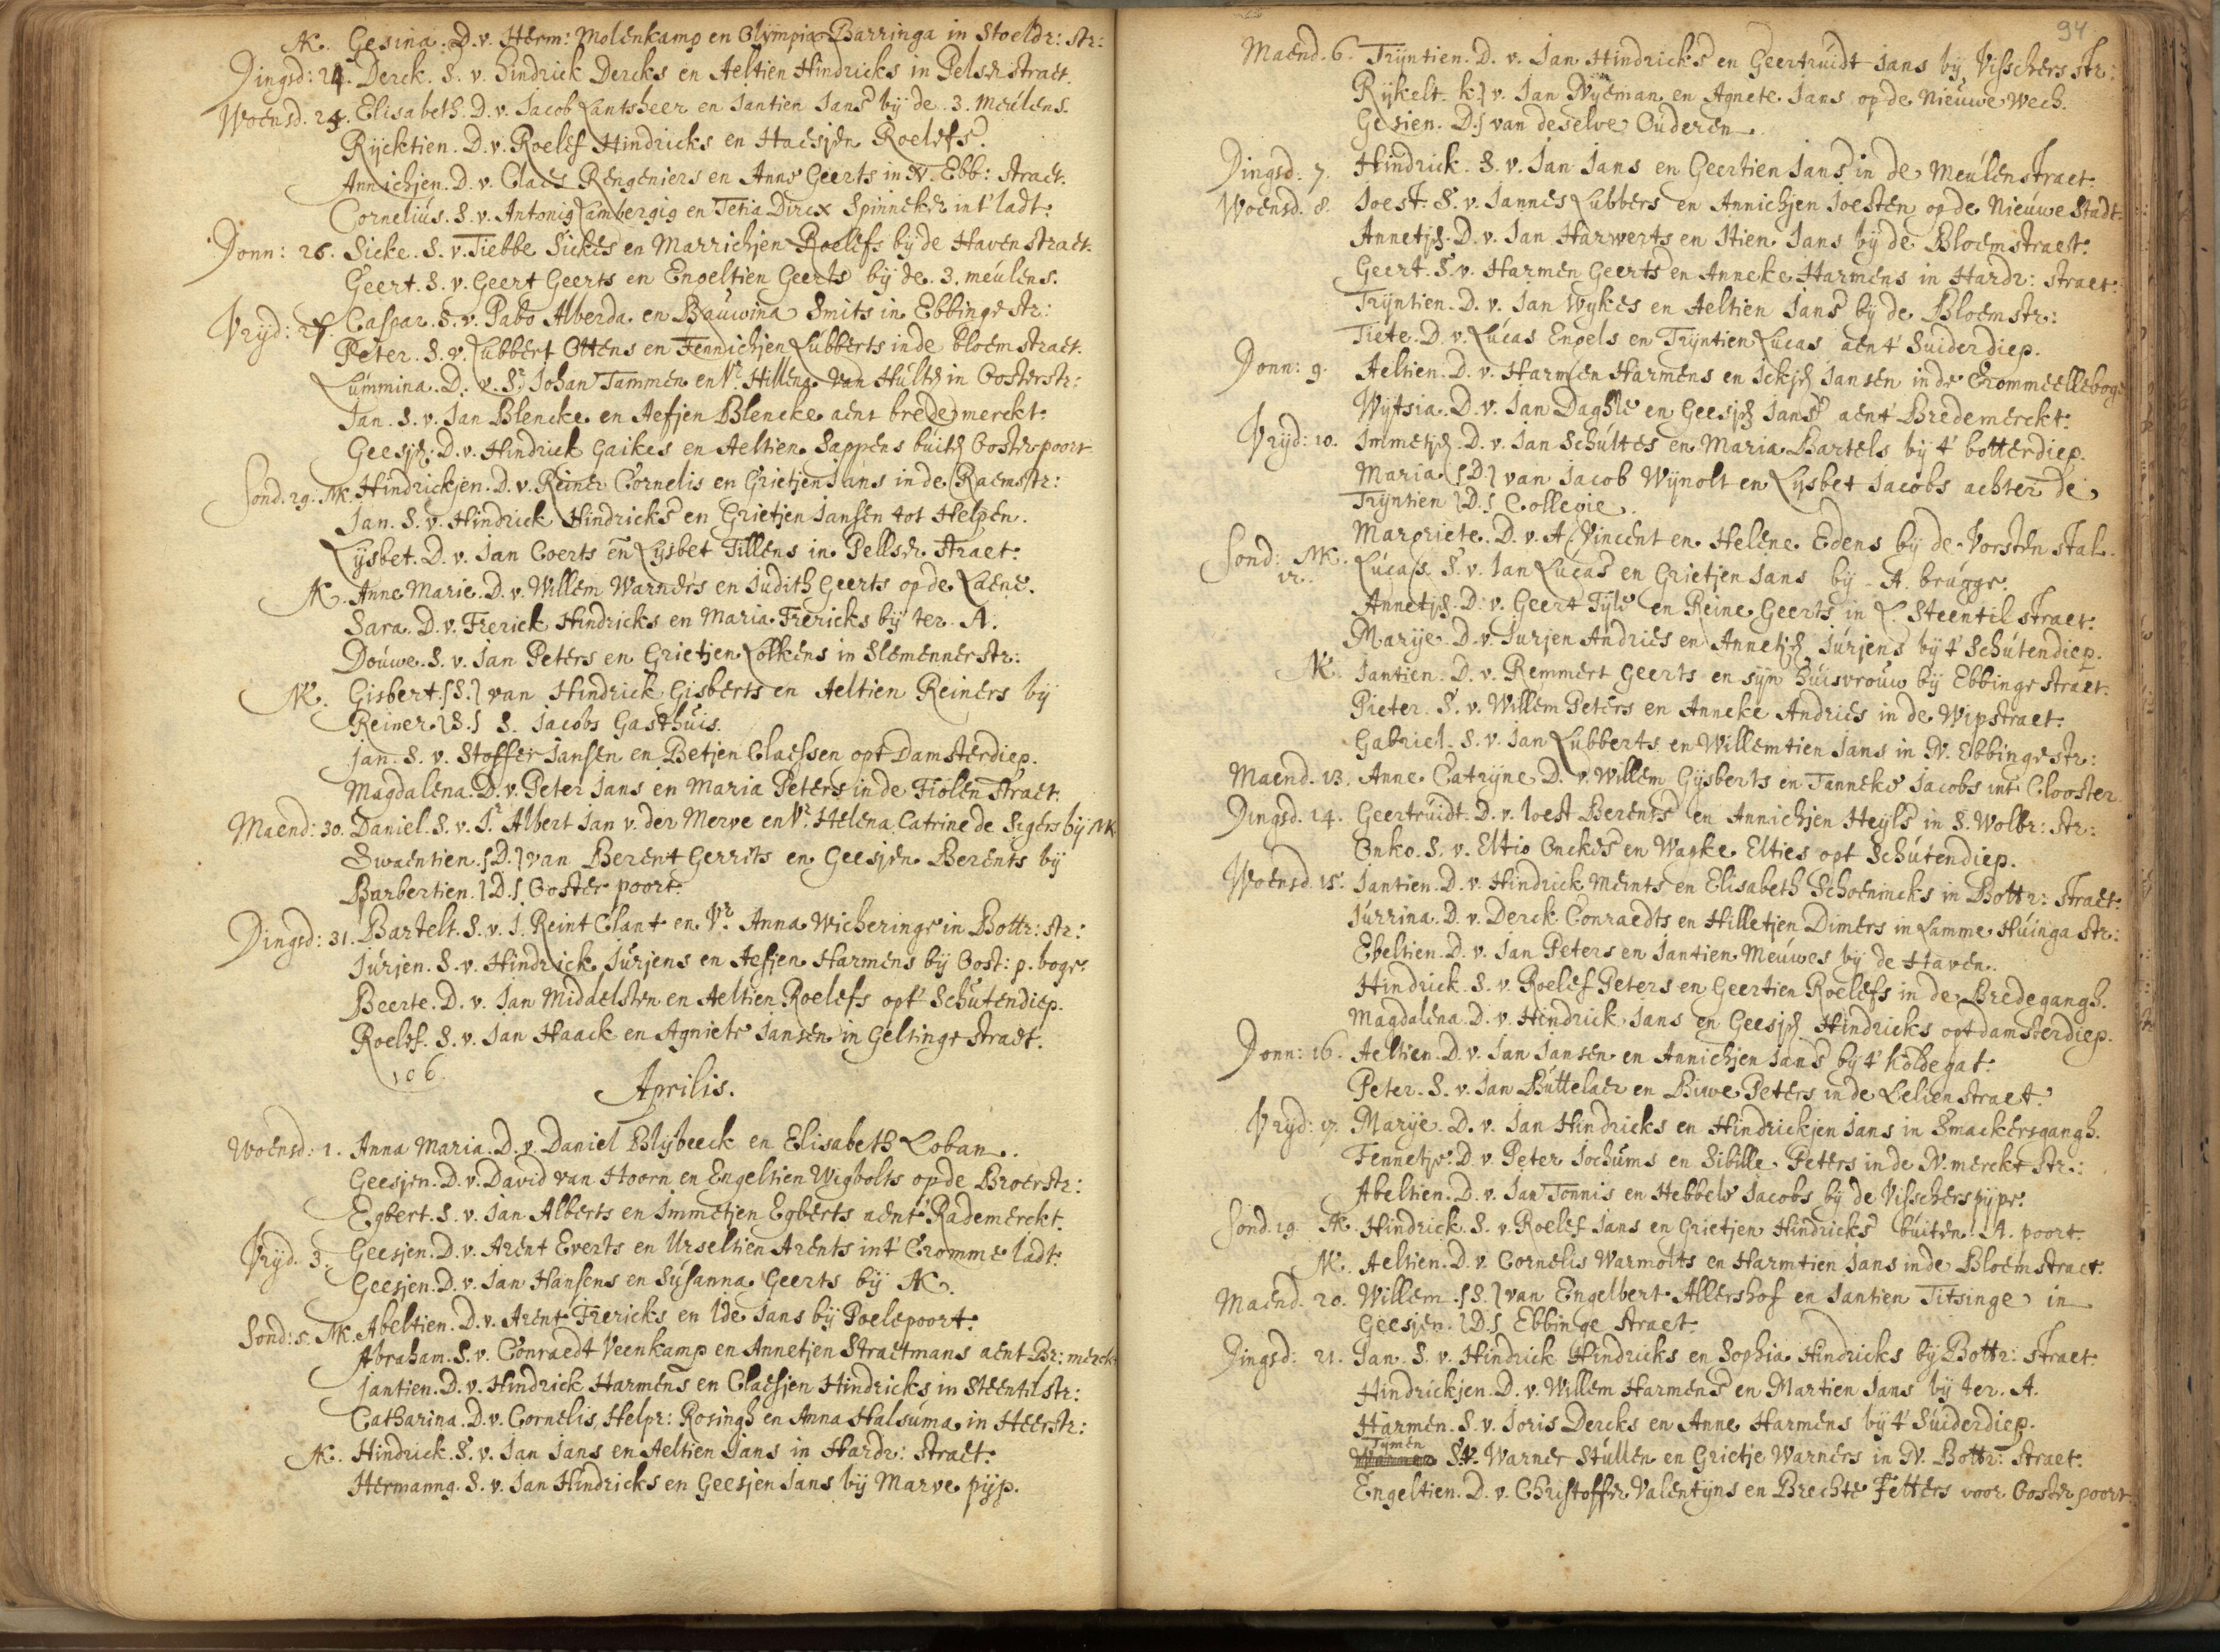 AK. Gesina. D. v. Herm: Molenkamp en Olympia Barringa in Stoeldr: str:
Dingsd: 24. Derck. S. v. Hindrick Dercks en Aeltien Hindricks in Pelser straet.
Woensd. 25. Elisabeth. D. v. Jacob Lantsheer en Jantien Jans bij de 3. meulens.
Rijcktien. D. v. Roelef Hindricks en Haesjen Roelefs.
Annichjen. D. v. Claes Rengeniers en Anne Geerts in N. Ebb: straet.
Cornelius. S. v. Antonig Lambergig en Tetia Dircx Spinneker int' ladt:
Donn: 26. Sicke. S. v. Tiebbe Sickes en Marrichjen Roelefs bij de Haven straet.
Geert. S. v. Geert Geerts en Engeltien Geerts bij de 3. meulens.
Vryd: 27. Caspar. S. v. Pabo Alberda en Bauwina Smits in Ebbinge str:
Peter. S. v. Lubbert Ottens en Fennichjen Lubberts in de bloemstraet.
Lummina. D. v. Sr. Johan Tammen en Vr. Hillena van Hulten in Oosterstr:
Jan. S. v. Jan Blencke en Aefjen Blencke aent brede merckt.
Geesjen. D. v. Hindrick Gaikes en Aeltien Sappens buiten Oosterpoort
Sond. 29. MK. Hindrickjen. D. v. Reiner Cornelis en Grietjen Jans in de Raemstr:
Jan. S. v. Hindrick Hindricks en Grietjen Jansen tot Helpen.
Lysbet. D. v. Jan Coerts en Lysbet Tillens in Pellser straet.
AK. Anne Marie. D. v. Willem Warners en Judith Geerts op de Laene.
Sara. D. v. Frerick Hindricks en Maria Frericks bij ter A.
Douwe. S. v. Jan Peters en Grietjen Lolkens in Slemennerstr:
NK. Gisbert. {S.} van Hindrick Gisberts en Aeltien Reiners bij
Reiner {S.} S. Jacobs Gasthuis.
Jan. S. v. Stoffer Jansen en Betjen Claessen opt Damsterdiep.
Magdalena. D. v. Peter Jans en Maria Peters in de Fiolen straet.
Maend: 30. Daniel. S. v. Jr. Albert Jan v. der Merve en Vr. Helena Catrine de Sigers bij MK
Swaentien. {D.} van Berent Gerrits en Geesjen Berents bij
Barbertien. {D.} Ooster poort.
Dingsd: 31. Bartelt. S. v. J. Reint Clant en Vr. Anna Wicheringe in Bottr: str:
Jurjen. S. v. Hindrick Jurjens en Aefjen Harmens bij Oost: p. boge.
Beerte. D. v. Jan Middelsten en Aeltien Roelefs opt' Schutendiep.
Roelef. S. v. Jan Haack en Agniete Jansen in Gelkinge straet.
106.
Aprilis.
Woensd: 1. Anna Maria. D. v. Daniel Blijbeeck en Elisabeth Loban.
Geesjen. D. v. David van Hoorn en Engeltien Wigbolts op de Broerstr:
Egbert. S. v. Jan Alberts en Immetjen Egberts aent' Rademerckt.
Vryd. 3. Geesjen. D. v. Arent Everts en Urseltien Arents int' Cromme ladt.
Geesjen. D. v. Jan Hansens en Susanna Geerts bij AK.
Sond: 5. MK. Abeltien. D. v. Arent Frericks en Ide Jans bij Poelepoort.
Abraham. S. v. Conraedt Veenkamp en Annetjen Straetmans aent Br: merck
Jantien. D. v. Hindrick Harmens en Claesjen Hindricks in Steentilstr:
Catharina. D. v. Cornelis Helpr: Rosingh en Anna Halsuma in Heerstr:
AK. Hindrick. S. v. Jan Jans en Aeltien Jans in Hardr: straet.
Hermanng. S. v. Jan Hindricks en Geesjen Jans bij Marve pijp.
94
Maend. 6. Trijntien. D. v. Jan Hindricks en Geertruidt Jans bij Visschers str:
Rijkelt. k.} v. Jan Nyeman en Agnete Jans op de Nieuwe Wech.
Gesien. D.} van deselve Ouderen
Dingsd: 7. Hindrick. S. v. Jan Jans en Geertien Jans in de Meulenstraet.
Woensd. 8. Joest. S. v. Jannes Lubbers en Annichjen Joesten op de Nieuwe Stadt.
Annetjen. D. v. Jan Harwerts en Stien Jans bij de Bloemstraet.
Geert. S. v. Harmen Geerts en Anneke Harmens in Hardr: straet.
Trijntien. D. v. Jan Wykes en Aeltien Jans bij de Bloemstr:
Tiete. D. v. Lucas Engels en Trijntien Lucas aent' Suiderdiep.
Donn: 9. Aeltien. D. v. Harmen Harmens en Ickjen Jansen in de Crommeelleboge
Wijtsia. D. v. Jan Daghle en Geesjen Jans aent' Bredemerckt.
Vryd: 10. Immetjen. D. v. Jan Schultes en Maria Bartels bij 't botterdiep.
Maria {D.} van Jacob Wijnolt en Lysbet Jacobs achter de
Trijntien {D.} Collegie.
Margriete. D. v. A. Vincent en Helene Edens bij de Vorsten stal.
Sond: 12. MK. Lucas. S. v. Jan Lucas en Grietjen Jans bij A. brugge.
Annetjen. D. v. Geert Tijle en Reine Geerts in L. Steentil straet.
Marije. D. v. Jurjen Andries en Annetjen Jurjens bij 't Schutendiep.
NK. Jantien. D. v. Remmert Geerts en sijn huisvrouw bij Ebbinge straet.
Pieter. S. v. Willem Peters en Anneke Andries in de Wipstraet.
Gabriel. S. v. Jan Lubberts en Willemtien Jans in N. Ebbinge str:
Maend. 13. Anne Catrijne D. v. Willem Gijsberts en Tanneke Jacobs int Clooster.
Dingsd. 14. Geertruidt. D. v. Joest Berents en Annichjen Heyls in S. Wolbr: str:
Onko. S. v. Eltio Onckes en Wapke Elties opt Schutendiep.
Woensd. 15. Jantien. D. v. Hindrick Meints en Elisabeth Schoenincks in Bottr: straet.
Jurrina. D. v. Derck Conraedts en Hilletjen Dimers in Lamme Huinga str:
Ebeltien. D. v. Jan Peters en Jantien Meuwes bij de Haven.
Hindrick. S. v. Roelef Peters en Geertien Roelefs in de Bredegangh.
Magdalena. D. v. Hindrick Jans en Geesjen Hindricks opt damsterdiep.
Donn: 16. Aeltien. D. v. Jan Jansen en Annichjen Jans bij 't Koldegat.
Peter. S. v. Jan Buttelaer en Biwe Peters in de Lelien straet.
Vryd: 17. Marije. D. v. Jan Hindricks en Hindrickjen Jans in Smackersgangh.
Fennetje. D. v. Peter Jochums en Sibille Peters in de N. merckt str:
Abeltien. D. v. Jan Tonnis en Hebbele Jacobs bij de Visscherspijpe.
Sond. 19. AK. Hindrick. S. v. Roelef Jans en Grietjen Hindricks buiten A. poort.
NK. Aeltien. D. v. Cornelis Warmolts en Harmtien Jans in de Bloemstraet.
Maend. 20. Willem. {S.} van Engelbert Allershof en Jantien Titsinge in
Geesjen. {D.} Ebbinge straet.
Dingsd: 21. Jan. S. v. Hindrick Hindricks en Sophia Hindricks bij Bottr: straet.
Hindrickjen. D. v. Willem Harmens en Martien Jans bij ter A.
Harmen. S. v. Joris Dercks en Anne Harmens bij 't Suiderdiep.
Tymen S. v. Warner Stullen en Grietje Warners in N. Bottr: straet.
Engeltien. D. v. Christoffer Valentijns en Brechte Fetters voor Oosterpoort.